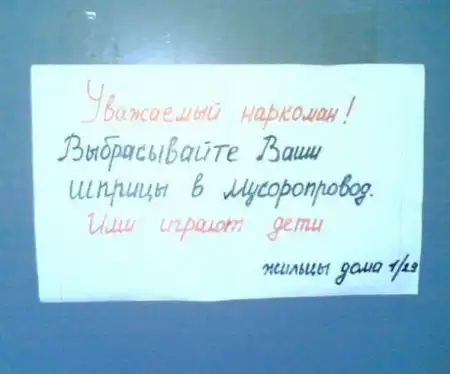 Уважаемый наркоман!
Выбрасывайте Ваши
шприцы в мусоропровод.
Ими играют дети
жильцы дома 1/29